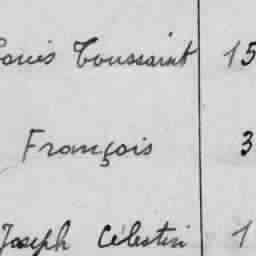 Louis Toussaint 15
François 3
Joseph Célestin 1